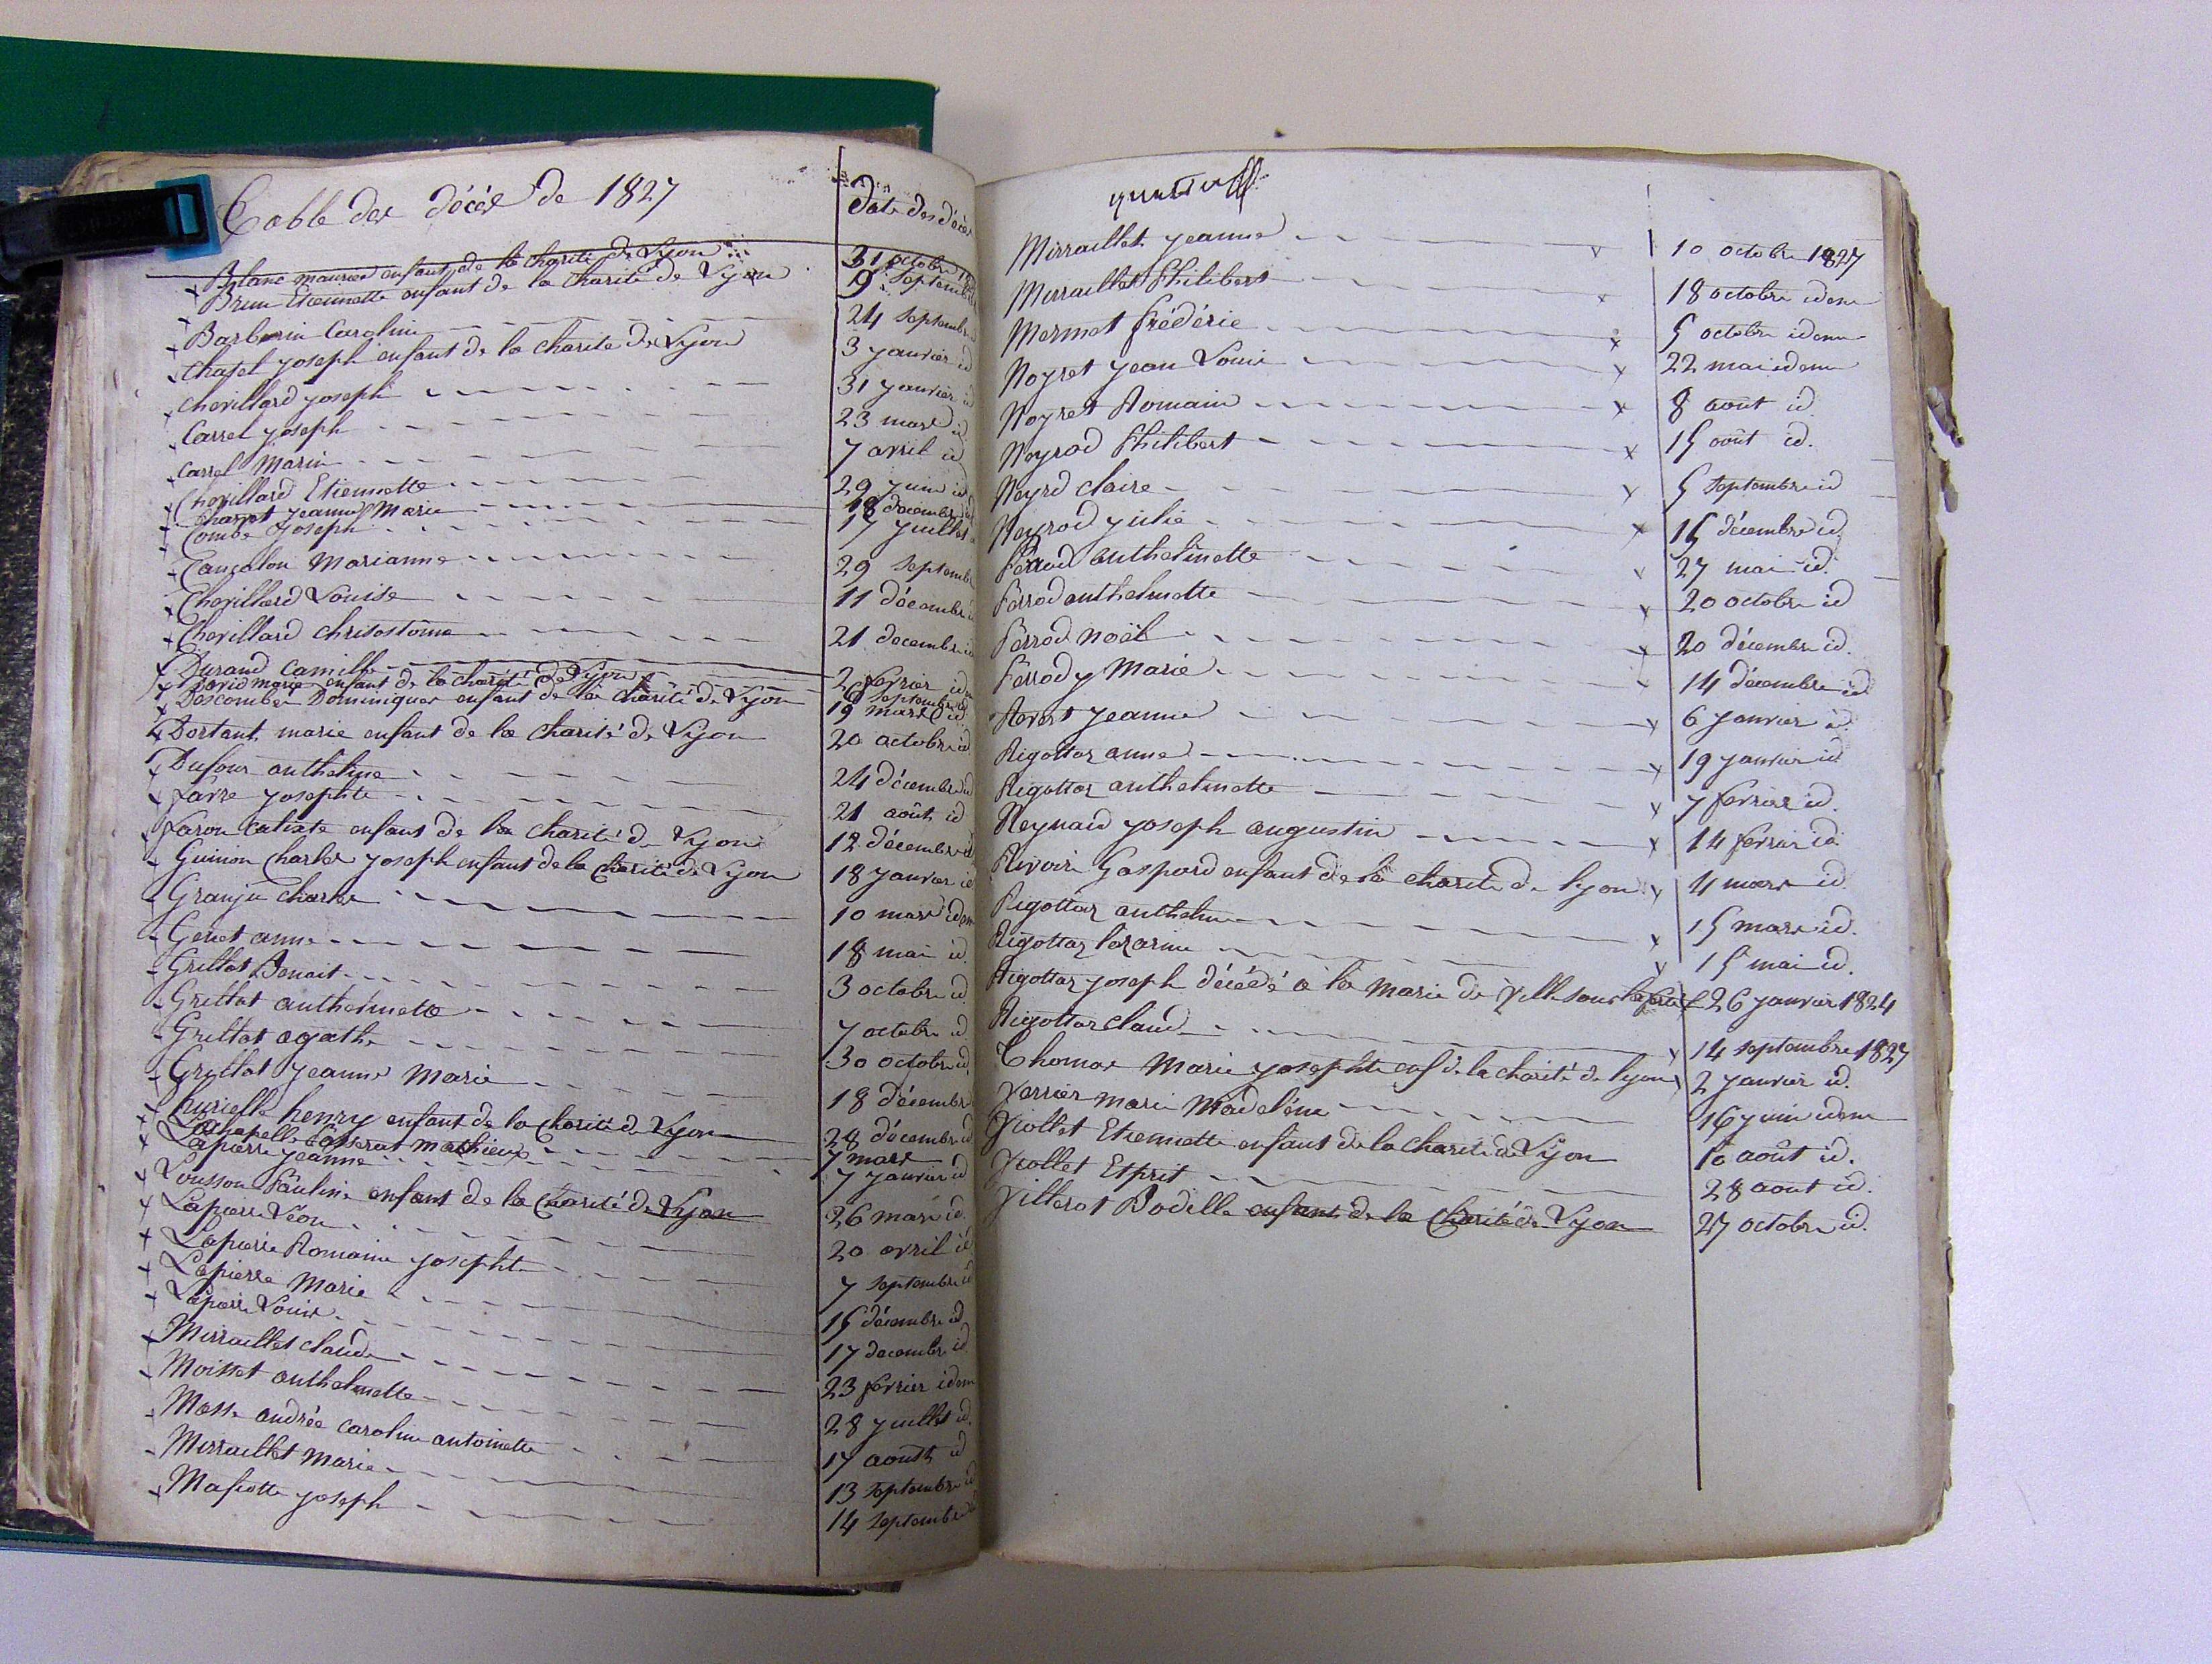 Table des décès de 1827
Date des décès
Blanc maurice enfant de la charité de Lyon 31 octobre
Brun Etiennette enfant de la Charité de Lyon 9 Septembre
Barberin Caroline 24 Septembre
Chatel joseph enfant de la charité de Lyon 3 janvier id
Chevillard joseph 31 janvier id
Carrel joseph 23 mars id
Carrel Marin 7 avril id
Chevillard Etiennette 29 juin id
Charvet jeanne Marie 18 decembre id
Combe Joseph 17 juillet
Cancalon Marianne 29 Septembre
Chevillard Louise 11 décembre
Chevillard chrisostôme 21 decembre id
Durand Camille 2 fevrier id
David marie enfant de la charité de Lyon 6 septembre id
Descombes Dominique enfant de la charité de Lyon 19 mars id
Dortant marie enfant de la Charité de Lyon 20 octobre id
Dufour anthelme 24 décembre id
Favre josephte 21 août id
Faron Calixte enfant de la charité de Lyon 12 décembre id
Guinon Charles joseph enfant de la Charité de Lyon 18 janvier id
Granju Charles 10 mars idem
Genet anne 18 mai id
Grillot Benoit 3 octobre id
Grillot anthelmette 7 octobre id
Grillot agathe 30 octobre id
Grillot jeanne Marie 18 décembre
henry enfant de la Charité de Lyon 28 décembre id
Lachapelle mathieu 7 mars
Lapierre jeanne 7 janvier id
Lousson Pauline enfant de la Charité de Lyon 26 mars id
Lapierre Léon 20 avril id
Lapierre Romaine josephte 7 septembre id
Lapierre Marie 15 décembre id
Lapierre Louise 17 decembre id
Mirraillet claude 23 fevrier idem
Moisset anthelmette 28 juillet id
Masse andrée caroline antoinette 17 août id
Mirraillet Marie 13 septembre id
Mafiotte joseph 14 septembre
Mirraillet jeanne 10 octobre 1827
Mirraillet Philibert 18 octobre idem
Mermet frédéric 5 octobre idem
Neyret jean Louis 22 mai idem
Neyret Romain 8 août id
Neyrod Philibert 15 août id.
Neyrd claire 5 Septembre id
Neyrod julie 15 décembre id
Perrod anthelmette 27 mai id.
Perrod anthelmette 20 octobre id
Perrod noël 20 décembre id.
Perrod y Marie 14 décembre id
Revest jeanne 6 janvier id
Rigottaz anne 19 janvier id
Rigottaz anthelmette 7 fevrier id.
Reynaud joseph augustin 14 fevrier id
Rivoire Gaspard enfant de la charité de lyon 4 mars id
Rigottaz anthelme 15 mars id.
Rigottaz lazarine 15 mai id.
Rigottaz joseph décédé à la Marie de Ville sous la ferté 26 janvier 1824
Rigottaz claud 14 septembre 1827
Thomas Marie josephte enf de la charité de lyon 2 janvier id.
Verrier marie Madeléne 16 juin idem
Viollet Etiennette enfant de la charité de Lyon 10 août id.
Viollet Esprit 28 aout id.
Villerot Bodille enfant de la Charité de Lyon 27 octobre id.